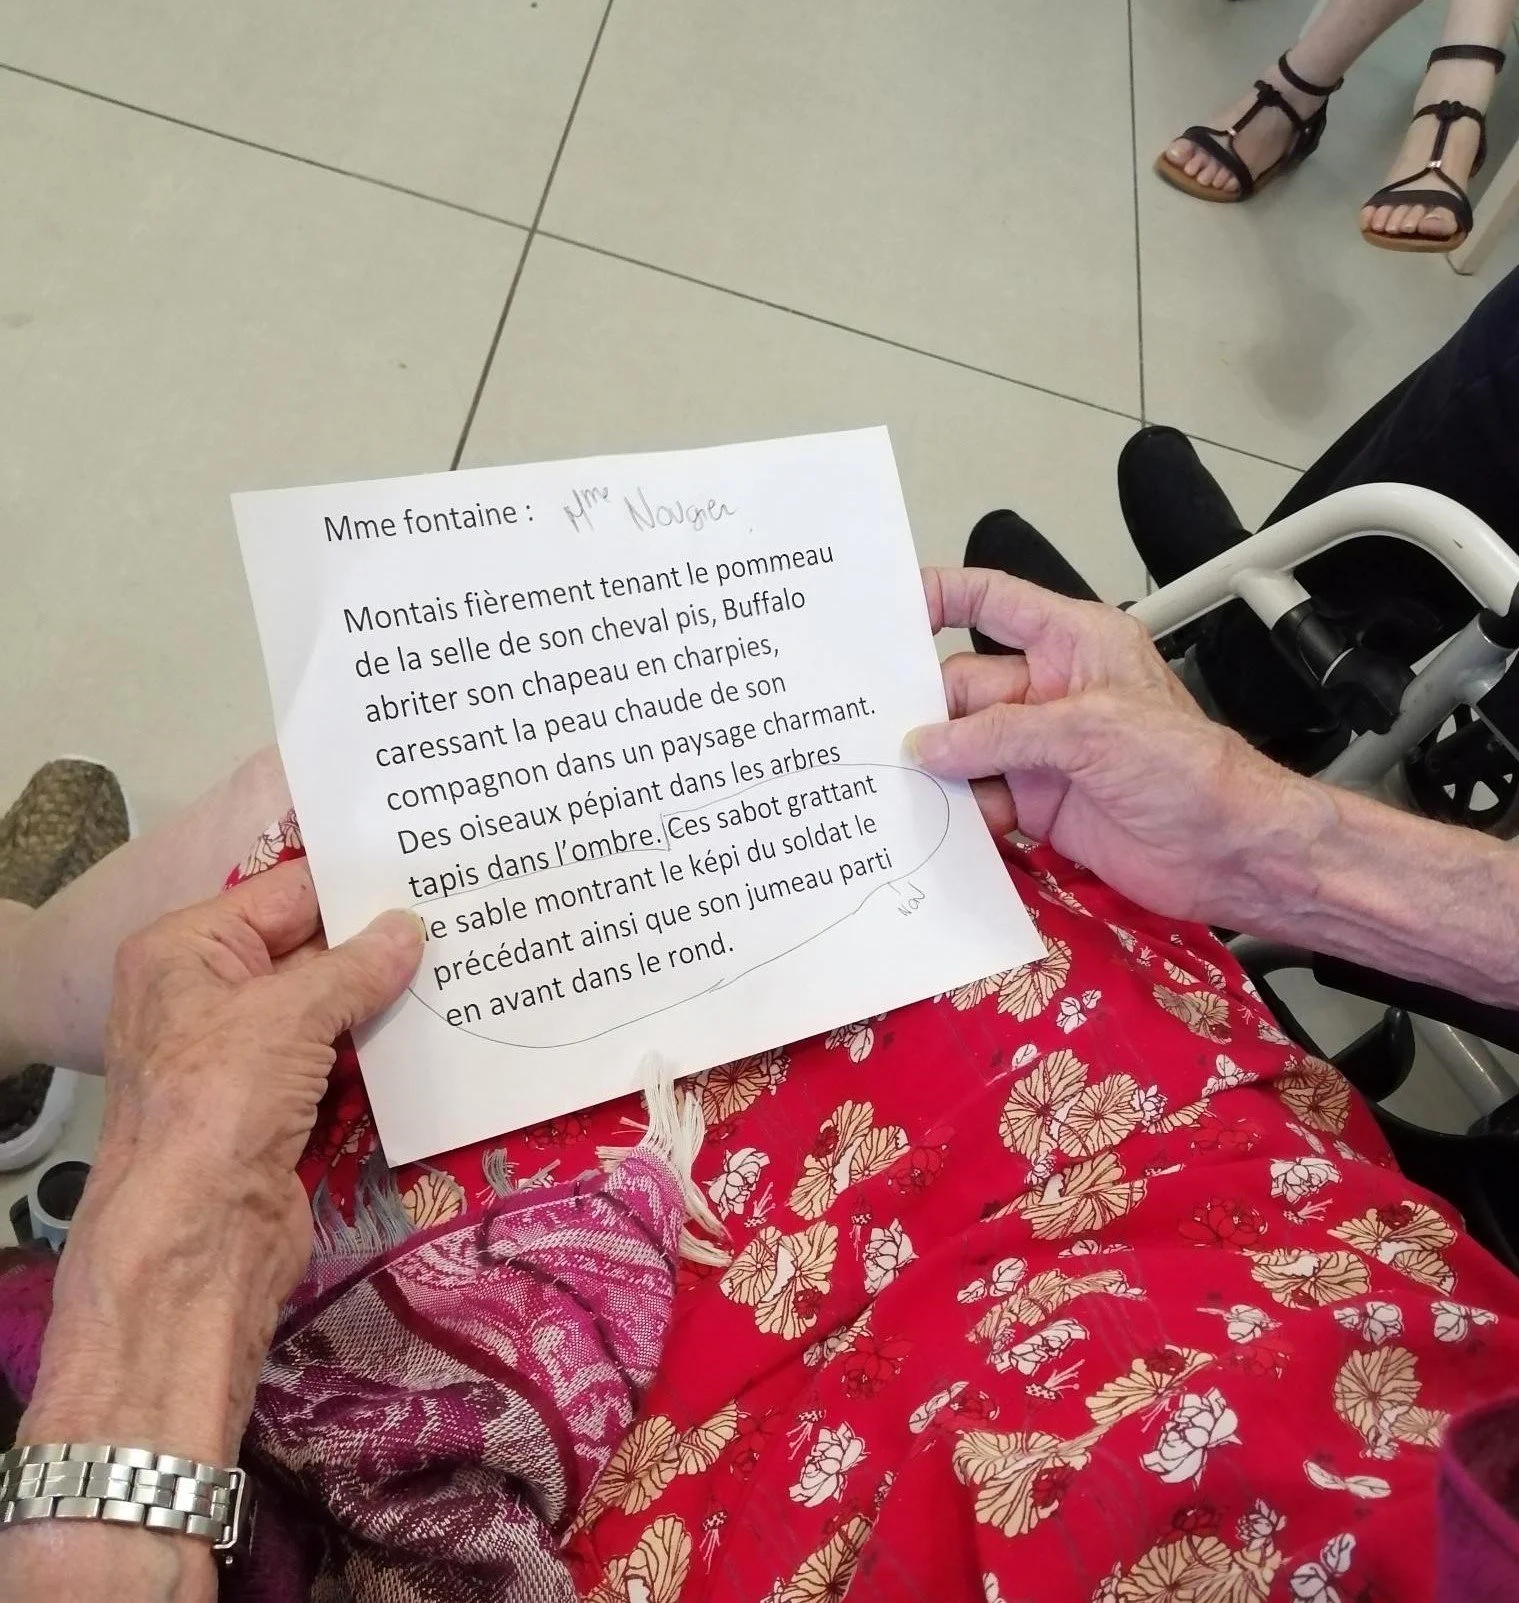 Mme fontaine : Mme Nougier
Montais fièrement tenant le pommeau
de la selle de son cheval pis, Buffalo
abriter son chapeau en charpies,
caressant la peau chaude de son
compagnon dans un paysage charmant.
Des oiseaux pépiant dans les arbres
tapis dans l'ombre. Ces sabot grattant
le sable montrant le képi du soldat le
précédant ainsi que son jumeau parti
en avant dans le rond.